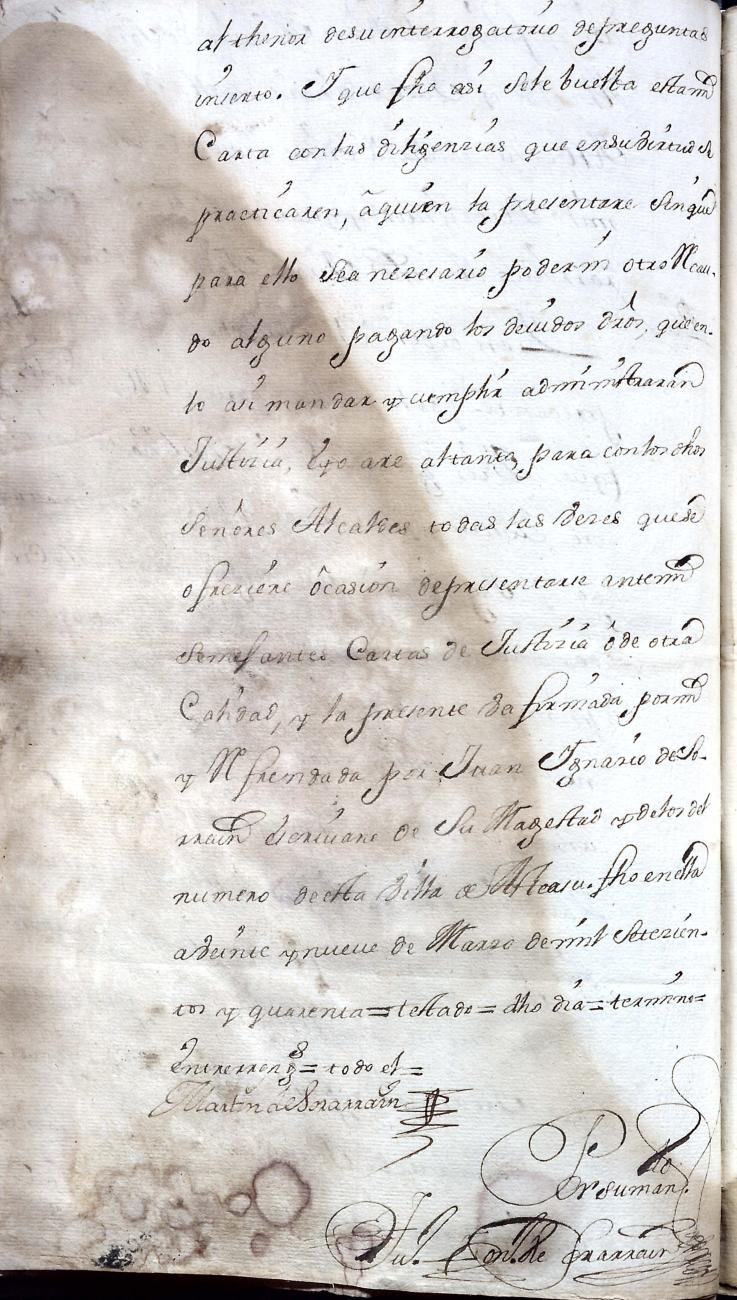 al thenor desu interrogatorio depreguntas
inserto. Y que fho asi sele buelba estami
Carta conlas dilijenzias que ensubirtud se
practicaren, â quien la presentare sinque
para ello sea nezesario poder ni otro Recau-
do alguno pagando los devidos dros, que en-
lo asi mandar y cumplir administraran
Justizia, è yo are al tanto, para con los dhos
señores Alcaldes todas las vezes que se
ofreziere ôcasion depresentarse antemi
semejantes Cartas de Justizia ô de otra
Calidad, y la presente va firmada pormi
y Refrendada por Juan Ygnazio de
escrivano de Su Magestad y delos del
numero de esta villa de Ateaun. fho en ella
aveinte y nueve de Marzo de mil setezien-
tos y quarenta = testado = dho dia = termino =
entrerrengs = todo el =
Martin de
Por su man.do
Ju.